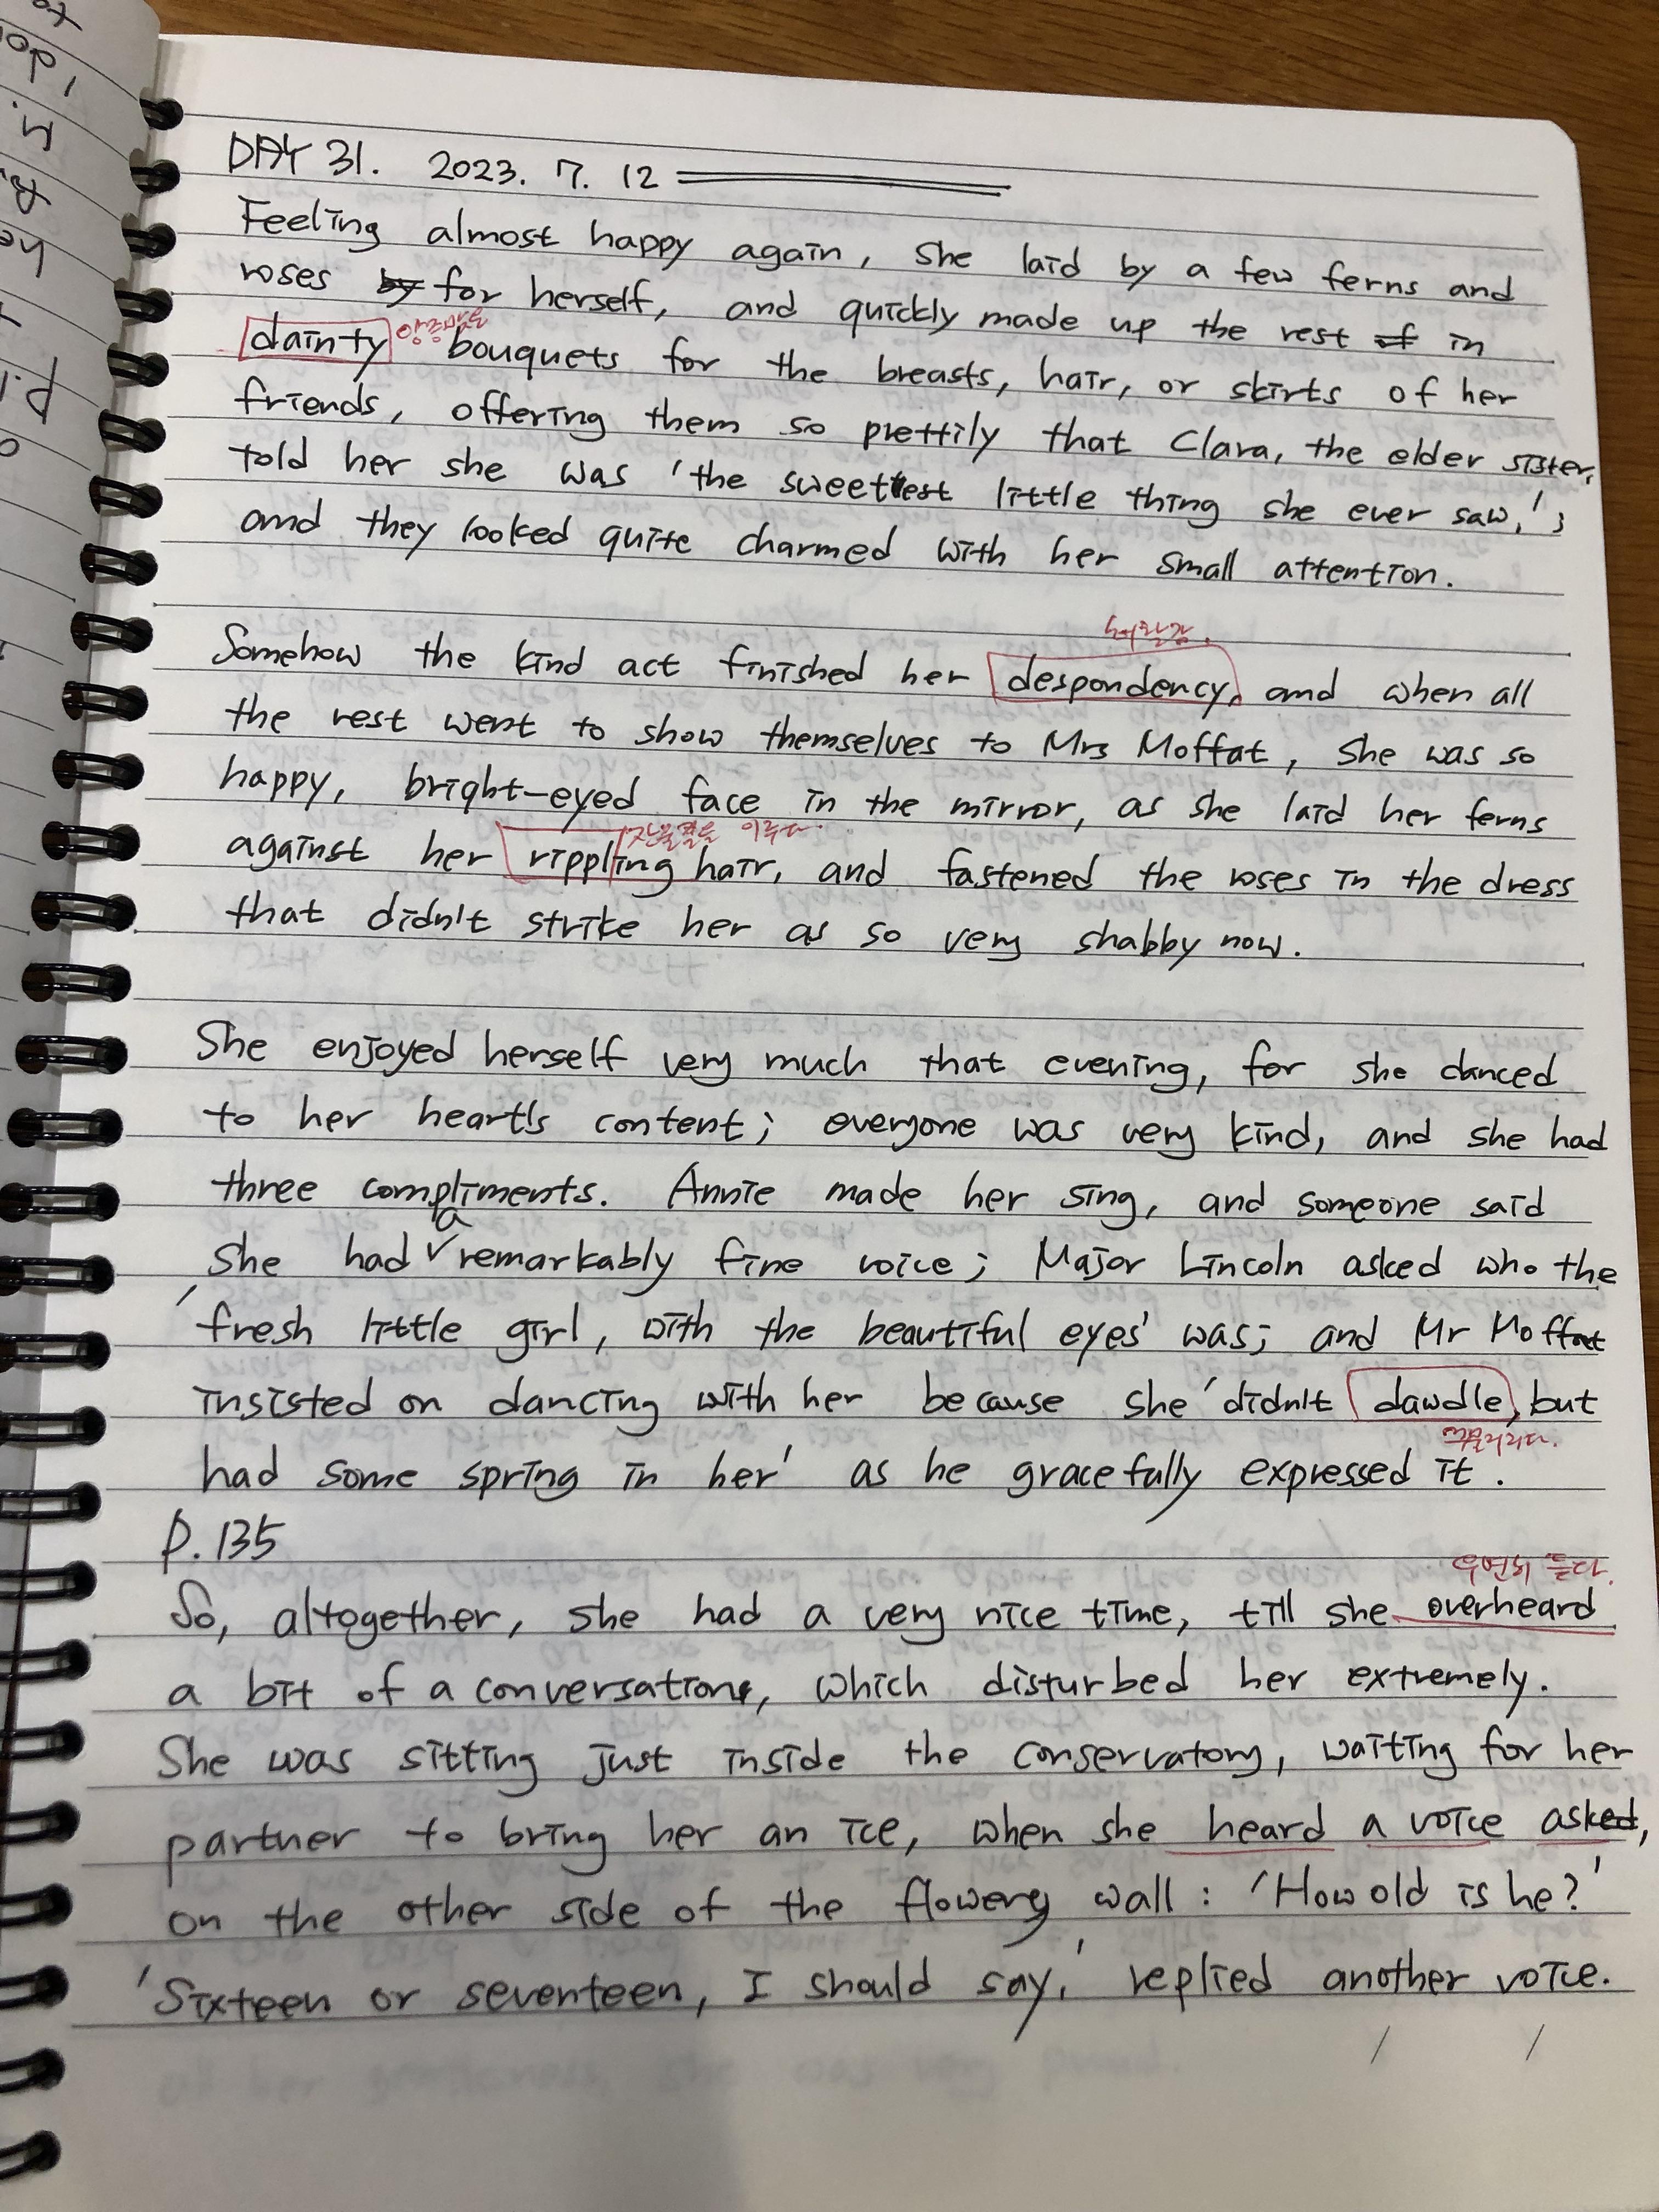 DAY 31. 2023. 7. 12
Feeling almost happy again, she laid by a few ferns and
roses by for herself, and quickly made up the rest of in
dainty 앙증맞은 bouquets for the breasts, hair, or skirts of her
friends, offering them so prettily that Clara, the elder sister,
told her she was 'the sweettest little thing she ever saw,';
and they looked quite charmed with her small attention.
Somehow the kind act finished her despondency, and when all
the rest went to show themselves to Mrs Moffat, she was so
happy, bright-eyed face in the mirror, as she laid her ferns
잔물결을 이루다.
against her rippling hair, and fastened the roses in the dress
that didn't strike her as so very shabby now.
She enjoyed herself very much that evening, for she danced
to her heart's content; everyone was very kind, and she had
three compliments. Annie made her sing, and someone said
she had a remarkably fine voice; Major Lincoln asked who the
'fresh little girl, with the beautiful eyes' was; and Mr Moffat
insisted on dancing with her because she 'didn't dawdle, but
had some spring in her' as he gracefully expressed it.
P.135
우연히 듣다.
So, altogether, she had a very nice time, till she overheard
a bit of a conversation, which disturbed her extremely.
She was sitting just inside the conservatory, waiting for her
partner to bring her an ice, when she heard a voice asked,
on the other side of the flowery wall: 'How old is he?'
'Sixteen or seventeen, I should say,' replied another voice.